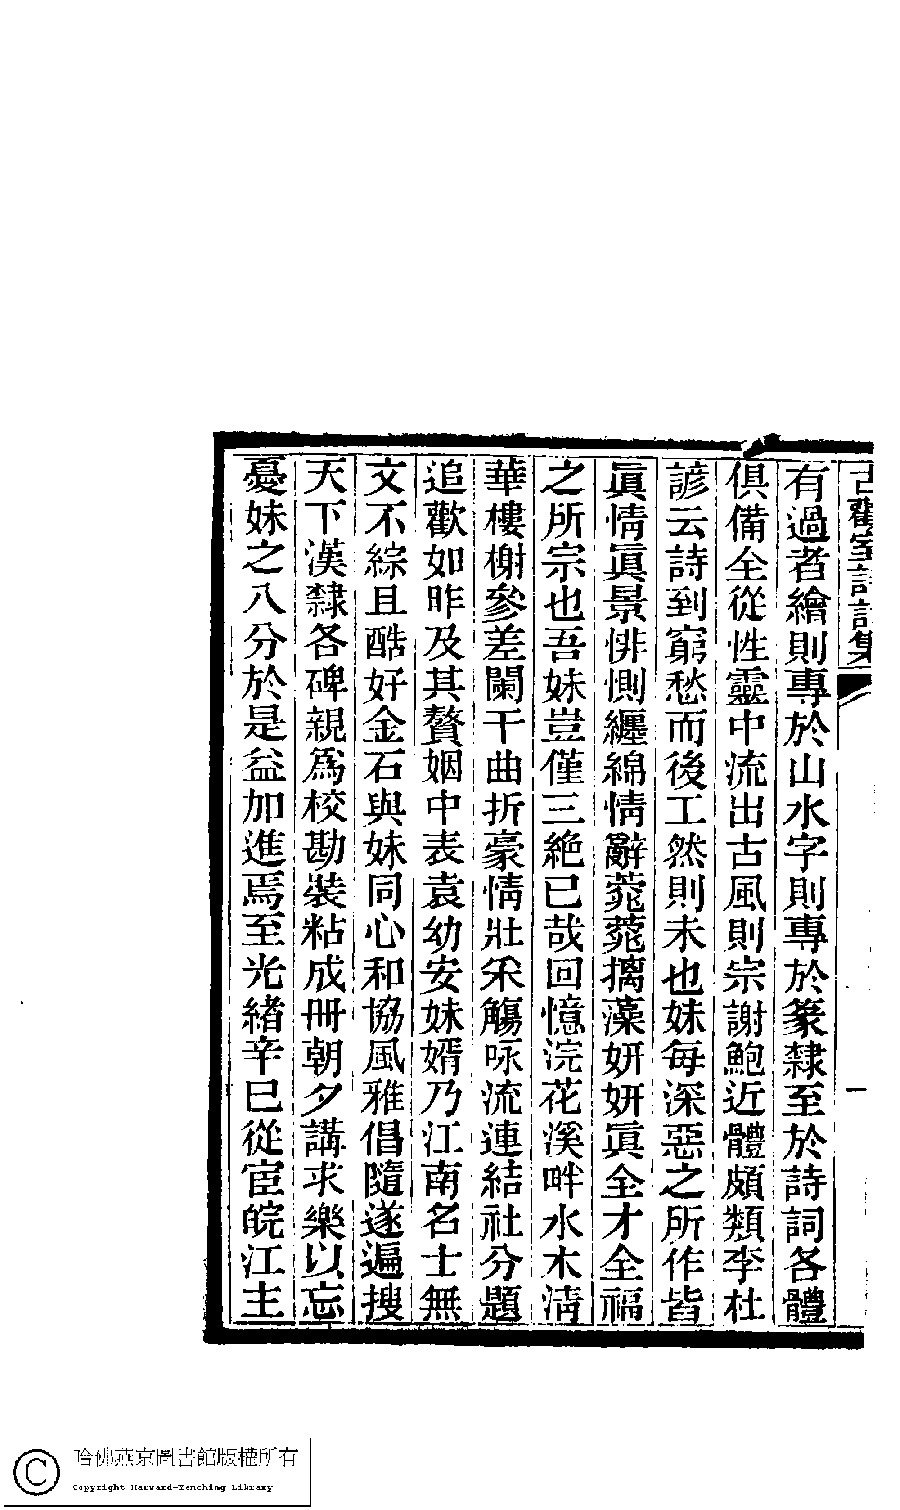 古歡室詩詞集
一
有過者繪則專於山水字則專於篆隸至於詩詞各體
俱備全從性靈中流出古風則宗謝鮑近體頗類李杜
諺云詩到窮愁而後工然則未也妹每深惡之所作皆
眞情眞景悱惻纏綿情辭菀菀摛藻妍妍眞全才全福
之所宗也吾妹豈僅三絶已哉回憶浣花溪畔水木淸
華樓榭參差闌干曲折豪情壯采觴咏流連結社分題
追歡如昨及其贅姻中表袁幼安妹婿乃江南名士無
文不綜且酷好金石與妹同心和協風雅倡隨遂遍搜
天下漢隸各碑親爲校勘裝粘成冊朝夕講求樂以忘
憂妹之八分於是益加進焉至光緒辛巳從宦皖江主
哈佛燕京圖書館版權所有
Copyright Harvard-Yenching Library